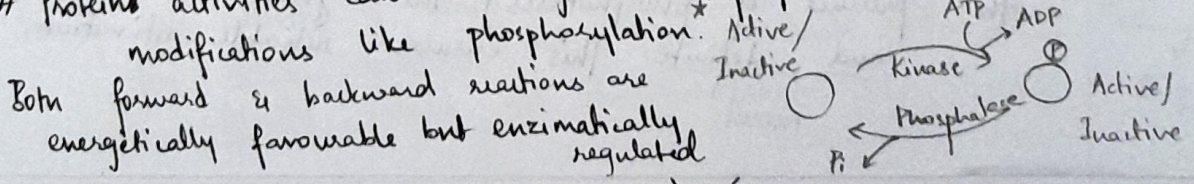 proteins activities
modifications like phosphorylation. *
Both forward & backward reactions are
energetically favourable but enzimatically
regulated
Active/
Inactive
ATP
ADP
Kinase
P
Phosphatase
Pi
Active/
Inactive